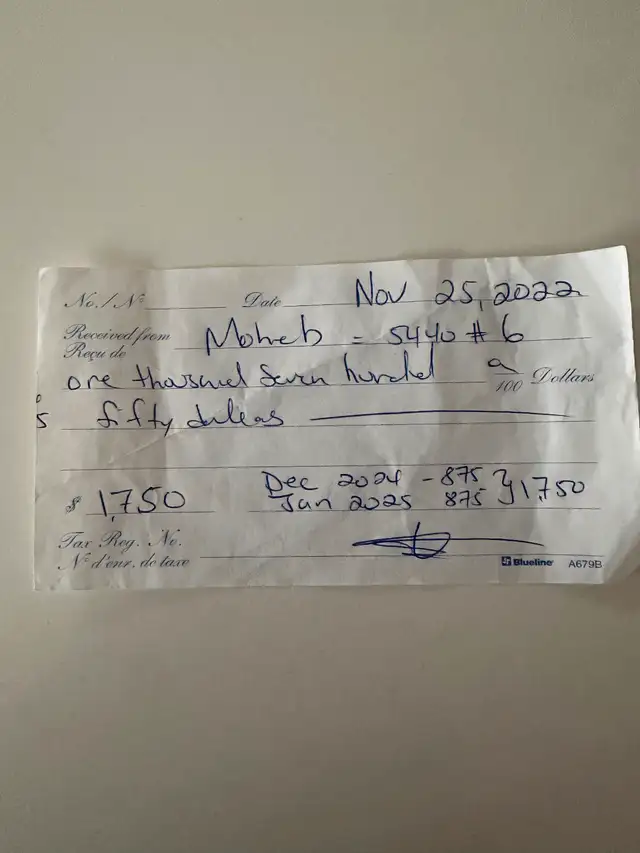 No./Nº Date Nov 25, 2022
Received from Moheb = 5440 # 6
Reçu de
one thousand seven hundred /100 Dollars
5 fifty
$ 1,750 Dec 2024 - 875 } 1750
Jan 2025 875
Tax Reg. No.
Nº d'enr. de taxe
Blueline A679B